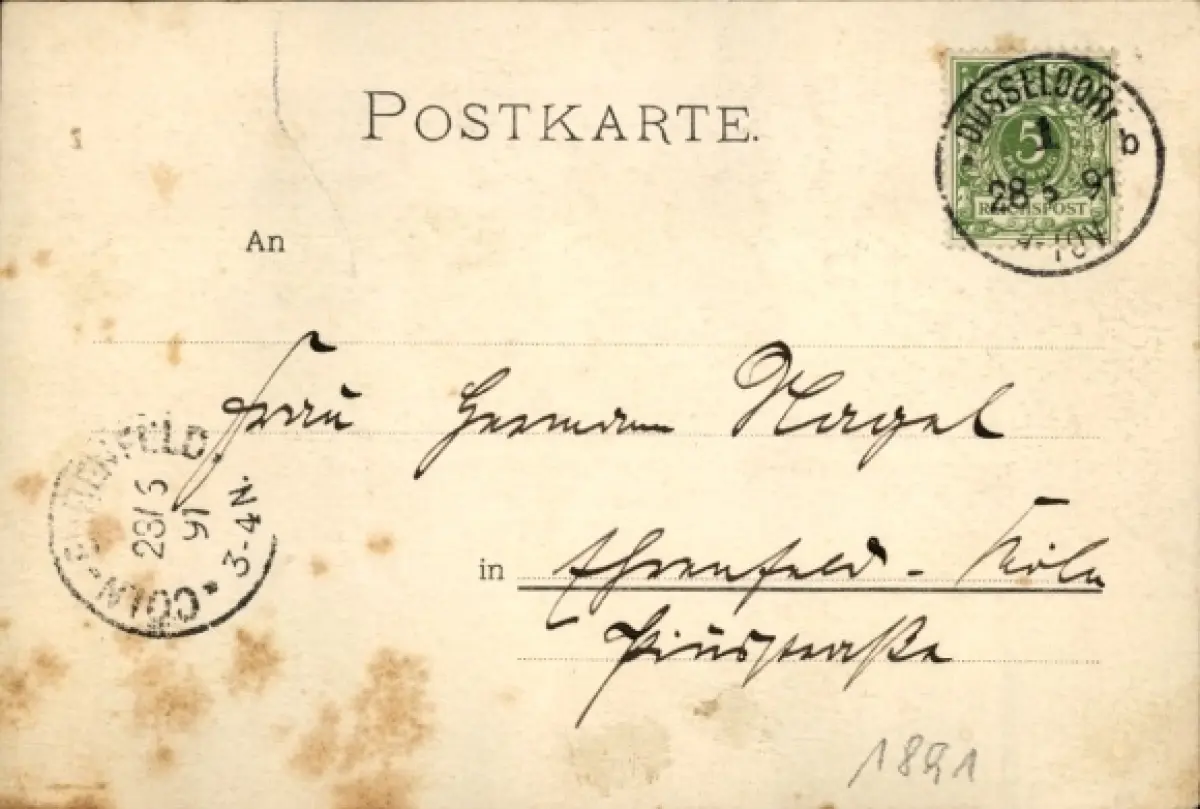 POSTKARTE.
DÜSSELDORF
1 b
28 5 91
9-10V
5
PFENNIG
REICHSPOST
An
Frau Hermann Nagel
CÖLN-EHRENFELD
28/5
91
3-4N.
in Ehrenfeld - Köln
Piusstraße
1891